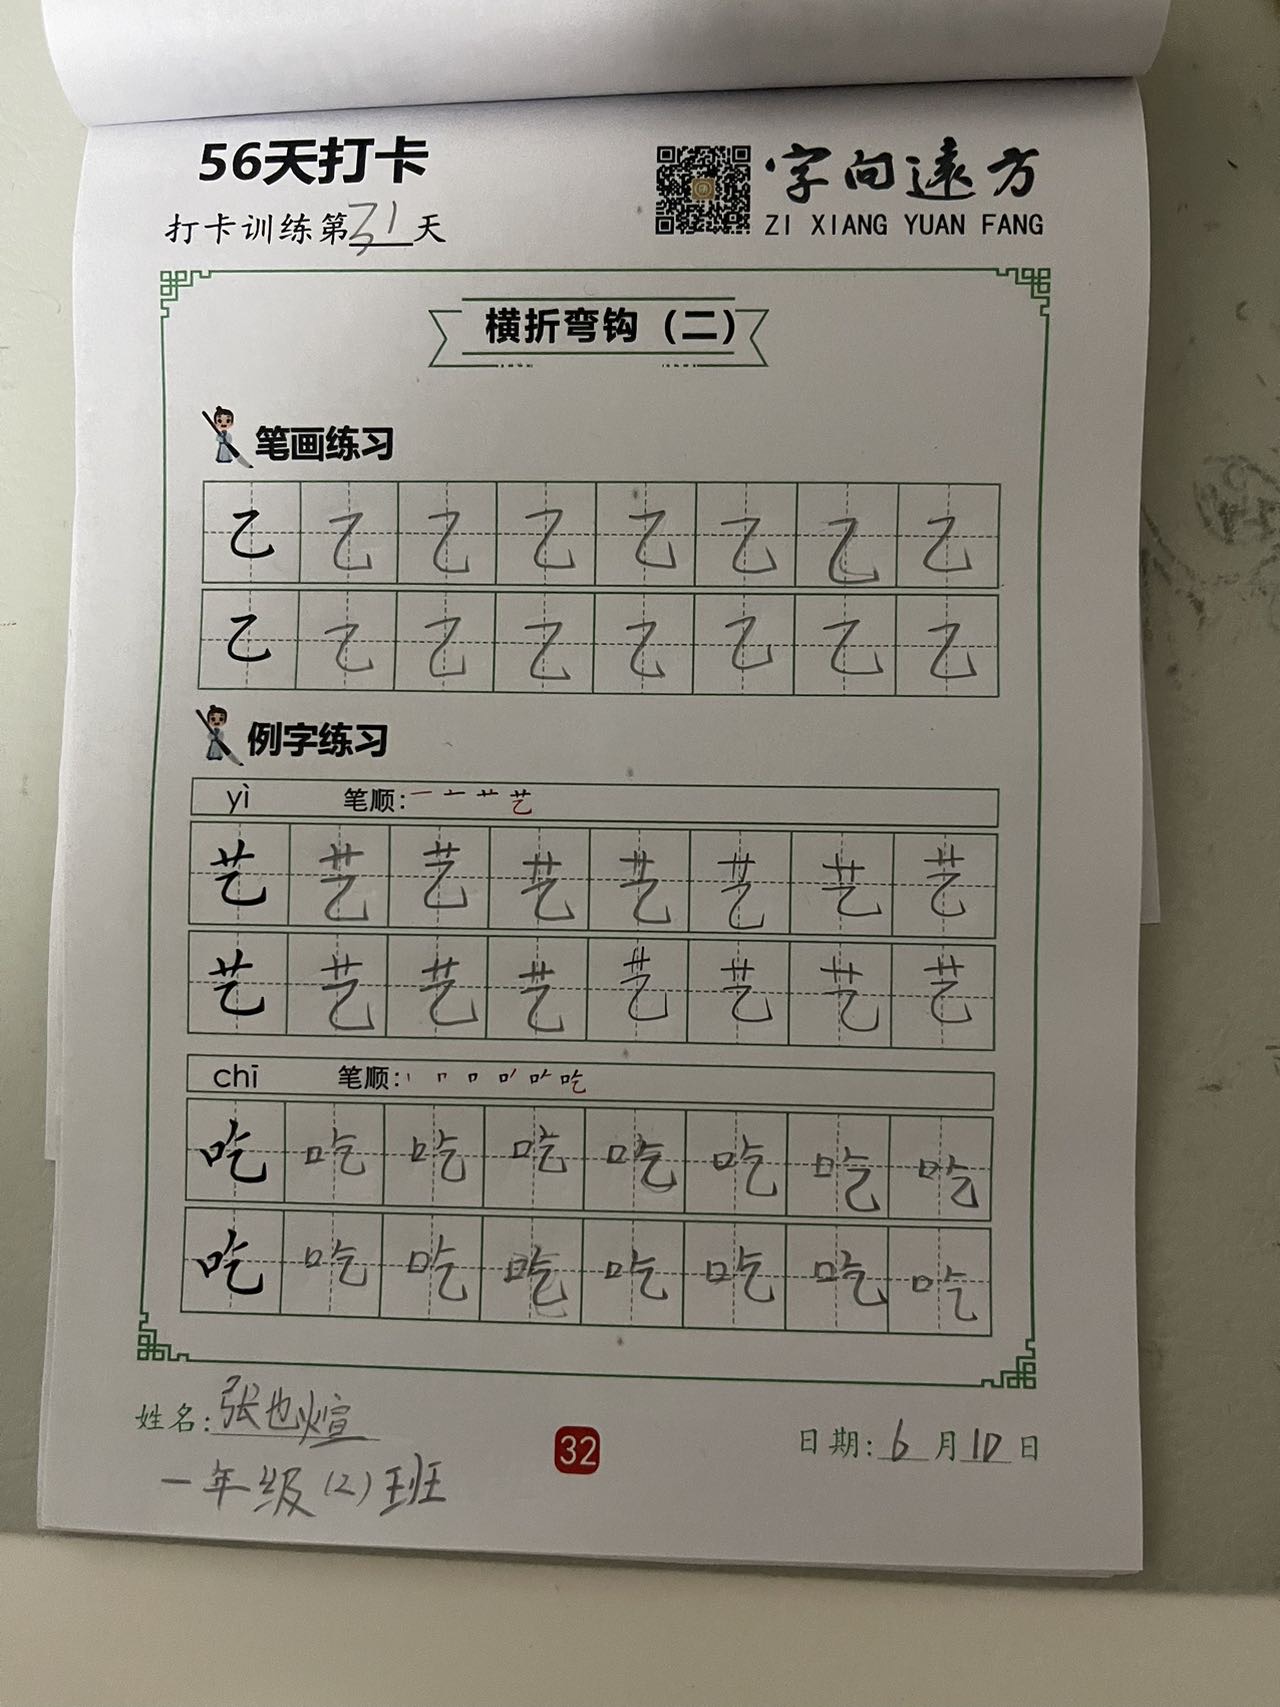 56天打卡
字向遠方
打卡训练第31天
ZI XIANG YUAN FANG
横折弯钩（二）
笔画练习
乙 乙 乙 乙 乙 乙 乙 乙
乙 乙 乙 乙 乙 乙 乙 乙
例字练习
yì 笔顺:
艺 艺 艺 艺 艺 艺 艺 艺
艺 艺 艺 艺 艺 艺 艺 艺
chī 笔顺:
吃 吃 吃 吃 吃 吃 吃 吃
吃 吃 吃 吃 吃 吃 吃 吃
姓名:张也煊
32
日期:6月10日
一年级(2)班